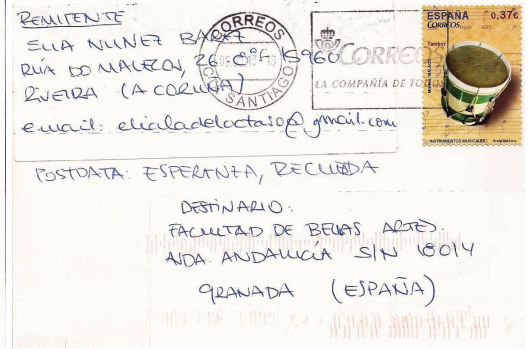 REMITENTE
ELIA NUÑEZ BAREZ
RÚA DO MALECON, 26 15960
RIVEIRA (A CORUÑA)
e-mail: elialadeloctavo@gmail.com
CORREOS
SANTIAGO
CORREOS
LA COMPAÑÍA DE TODOS
ESPAÑA 0,37€
CORREOS
Tambor
INSTRUMENTOS MUSICALES
POSTDATA: ESPERANZA, RECUERDA
DESTINARIO:
FACULTAD DE BELLAS ARTES.
AVDA. ANDALUCÍA S/N 18014
GRANADA (ESPAÑA)